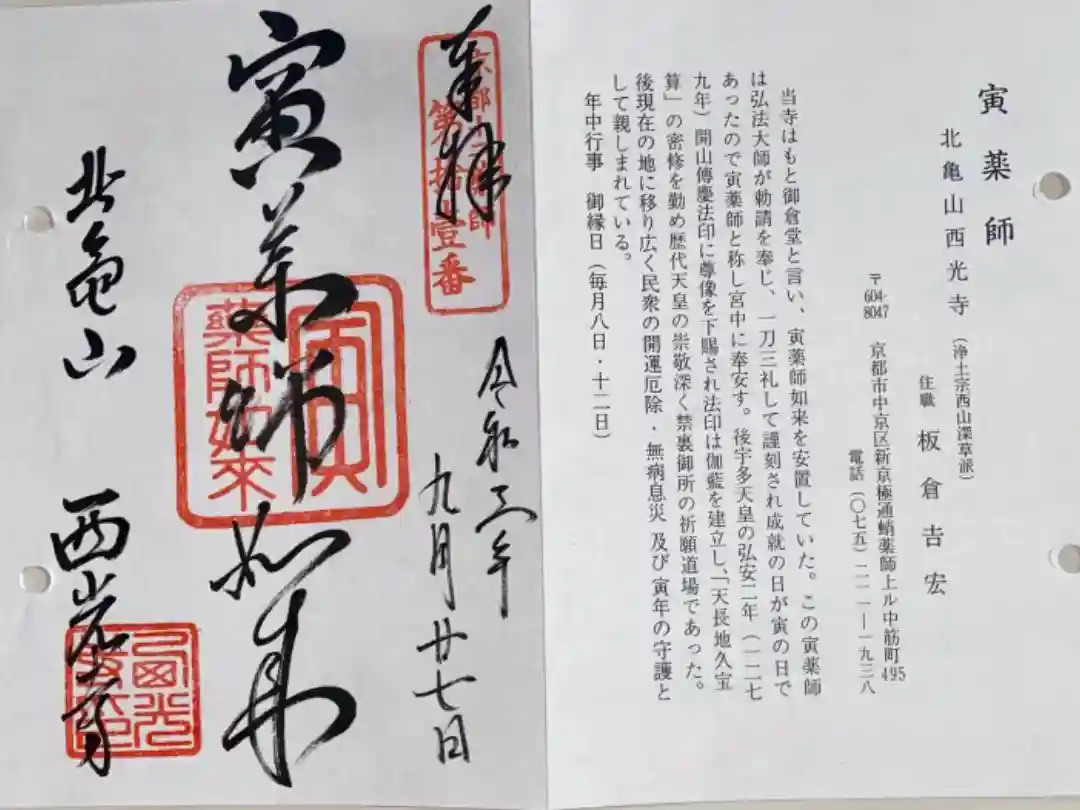 寅薬師
北亀山西光寺(浄土宗西山深草派)
住職 板倉𠮷宏
〒604-8047 京都市中京区新京極通蛸薬師上ル中筋町495
電話(〇七五)二一一―一九三八
当寺はもと御倉堂と言い、寅薬師如来を安置していた。この寅薬師
は弘法大師が勅請を奉じ、一刀三礼して謹刻され成就の日が寅の日で
あったので寅薬師と称し宮中に奉安す。後宇多天皇の弘安二年(一二七
九年)開山傳慶法印に尊像を下賜され法印は伽藍を建立し、「天長地久宝
算」の密修を勤め歴代天皇の崇敬深く禁裏御所の祈願道場であった。
後現在の地に移り広く民衆の開運厄除・無病息災 及び 寅年の守護と
して親しまれている。
年中行事 御縁日(毎月八日・十二日)
奉拝
京都十二薬師
第拾壹番
令和三年
九月廿七日
寅薬師如来
寅
薬師如来
北亀山 西光寺